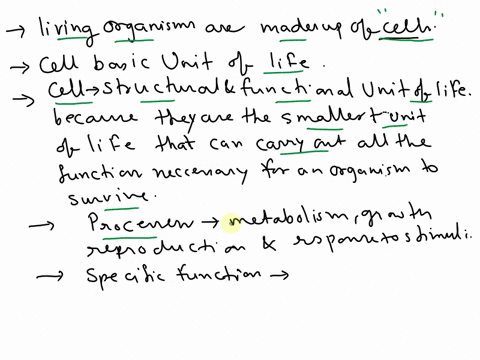 → living organism are made up of "cells."
→ Cell basic Unit of life.
→ Cell → structural & functional Unit of life.
because they are the smallest unit
of life that can carry out all the
function neccenary for an organism to
survive.
→ Processes → metabolism, growth
reproduction & response to stimuli.
→ Specific function →